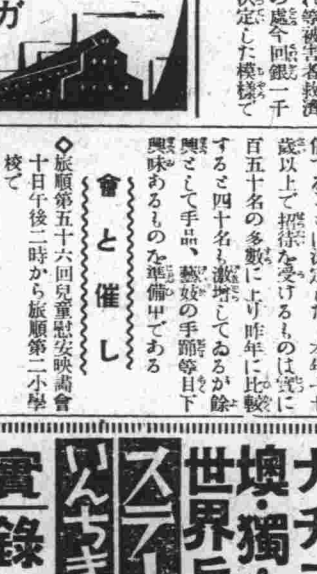 ガ
等被害者救濟
の處今回銀一千
決定した模樣で
歳以上で招待を受けるものは實に
百五十名の多數に上り昨年に比較
すると四十名も激增してゐるが餘
興として手品、藝妓の手踊等目下
興味あるものを準備中である
會と催し
◇旅順第五十六回兒童慰安映畵會
十日午後二時から旅順第二小學
校で
墺・獨
世界
ステー
いんちき
實錄